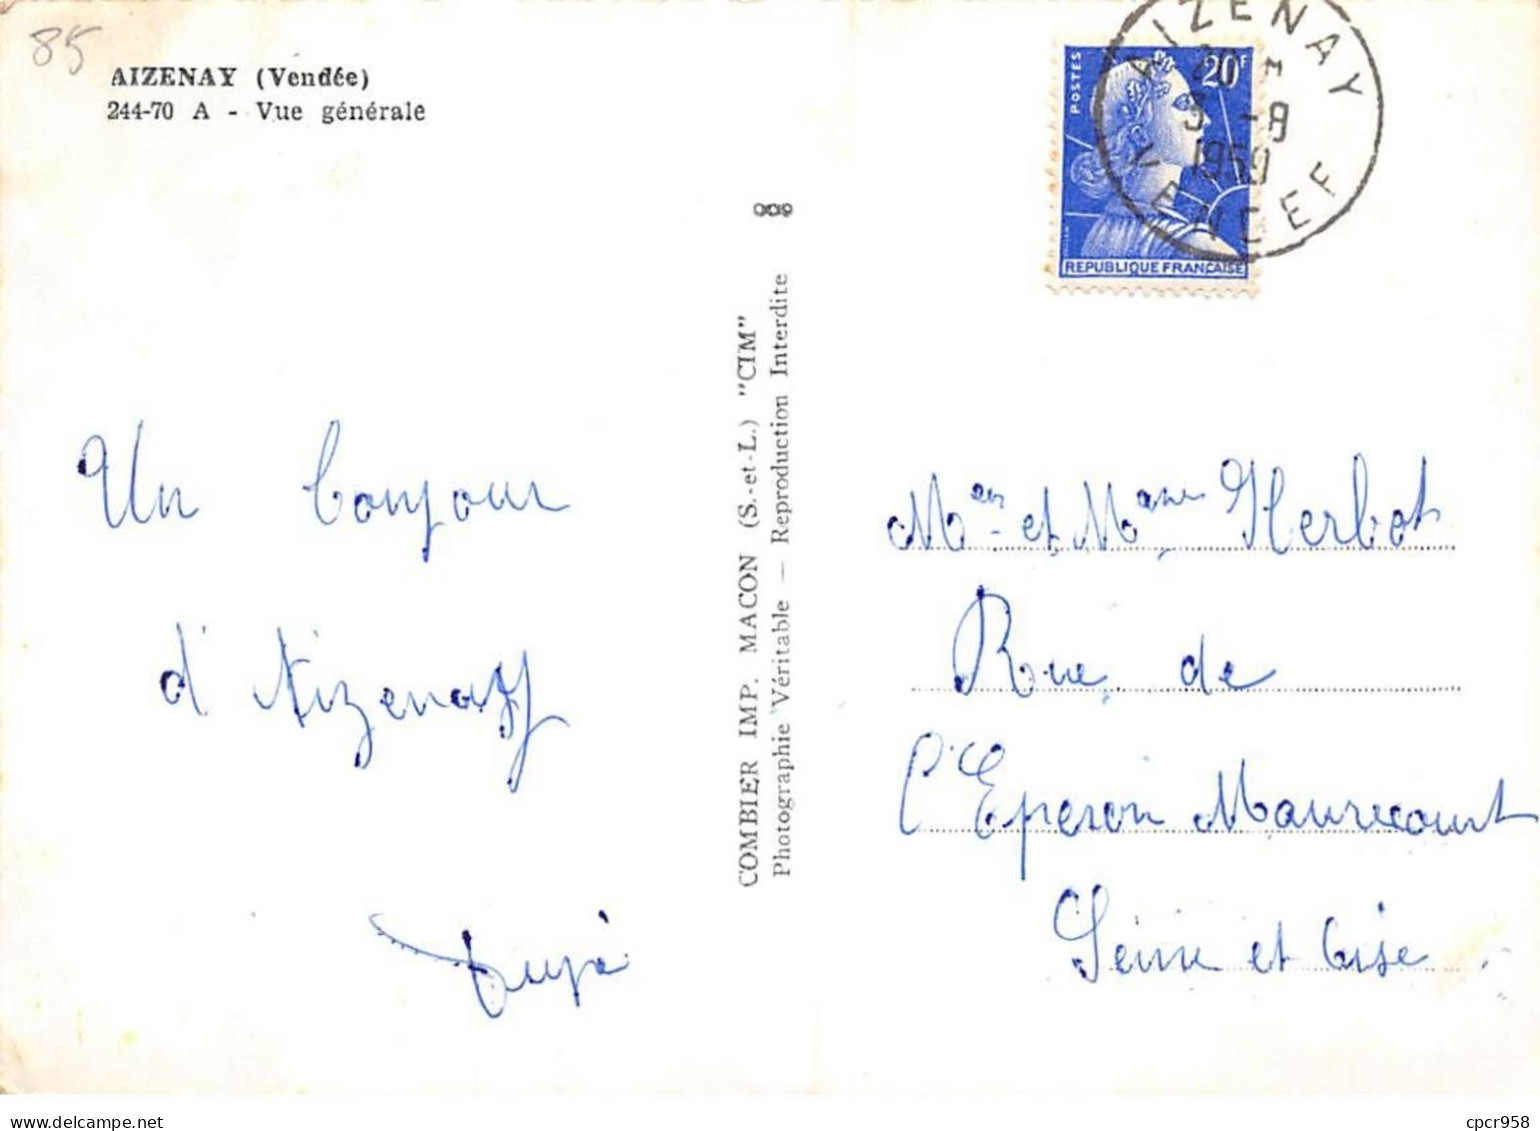 85
AIZENAY (Vendée)
244-70 A - Vue générale
AIZENAY
20 H
3 -8
1959
VENDEE
POSTES
20F
REPUBLIQUE FRANÇAISE
COMBIER IMP. MACON (S.-et-L.) "CIM"
Photographie Véritable — Reproduction Interdite
Un bonjour
d'Aizenay
Mer et Mame Herbot
Rue de
l'Eperon Maurecourt
Seine et Oise
Delcampe.net
cpcr958